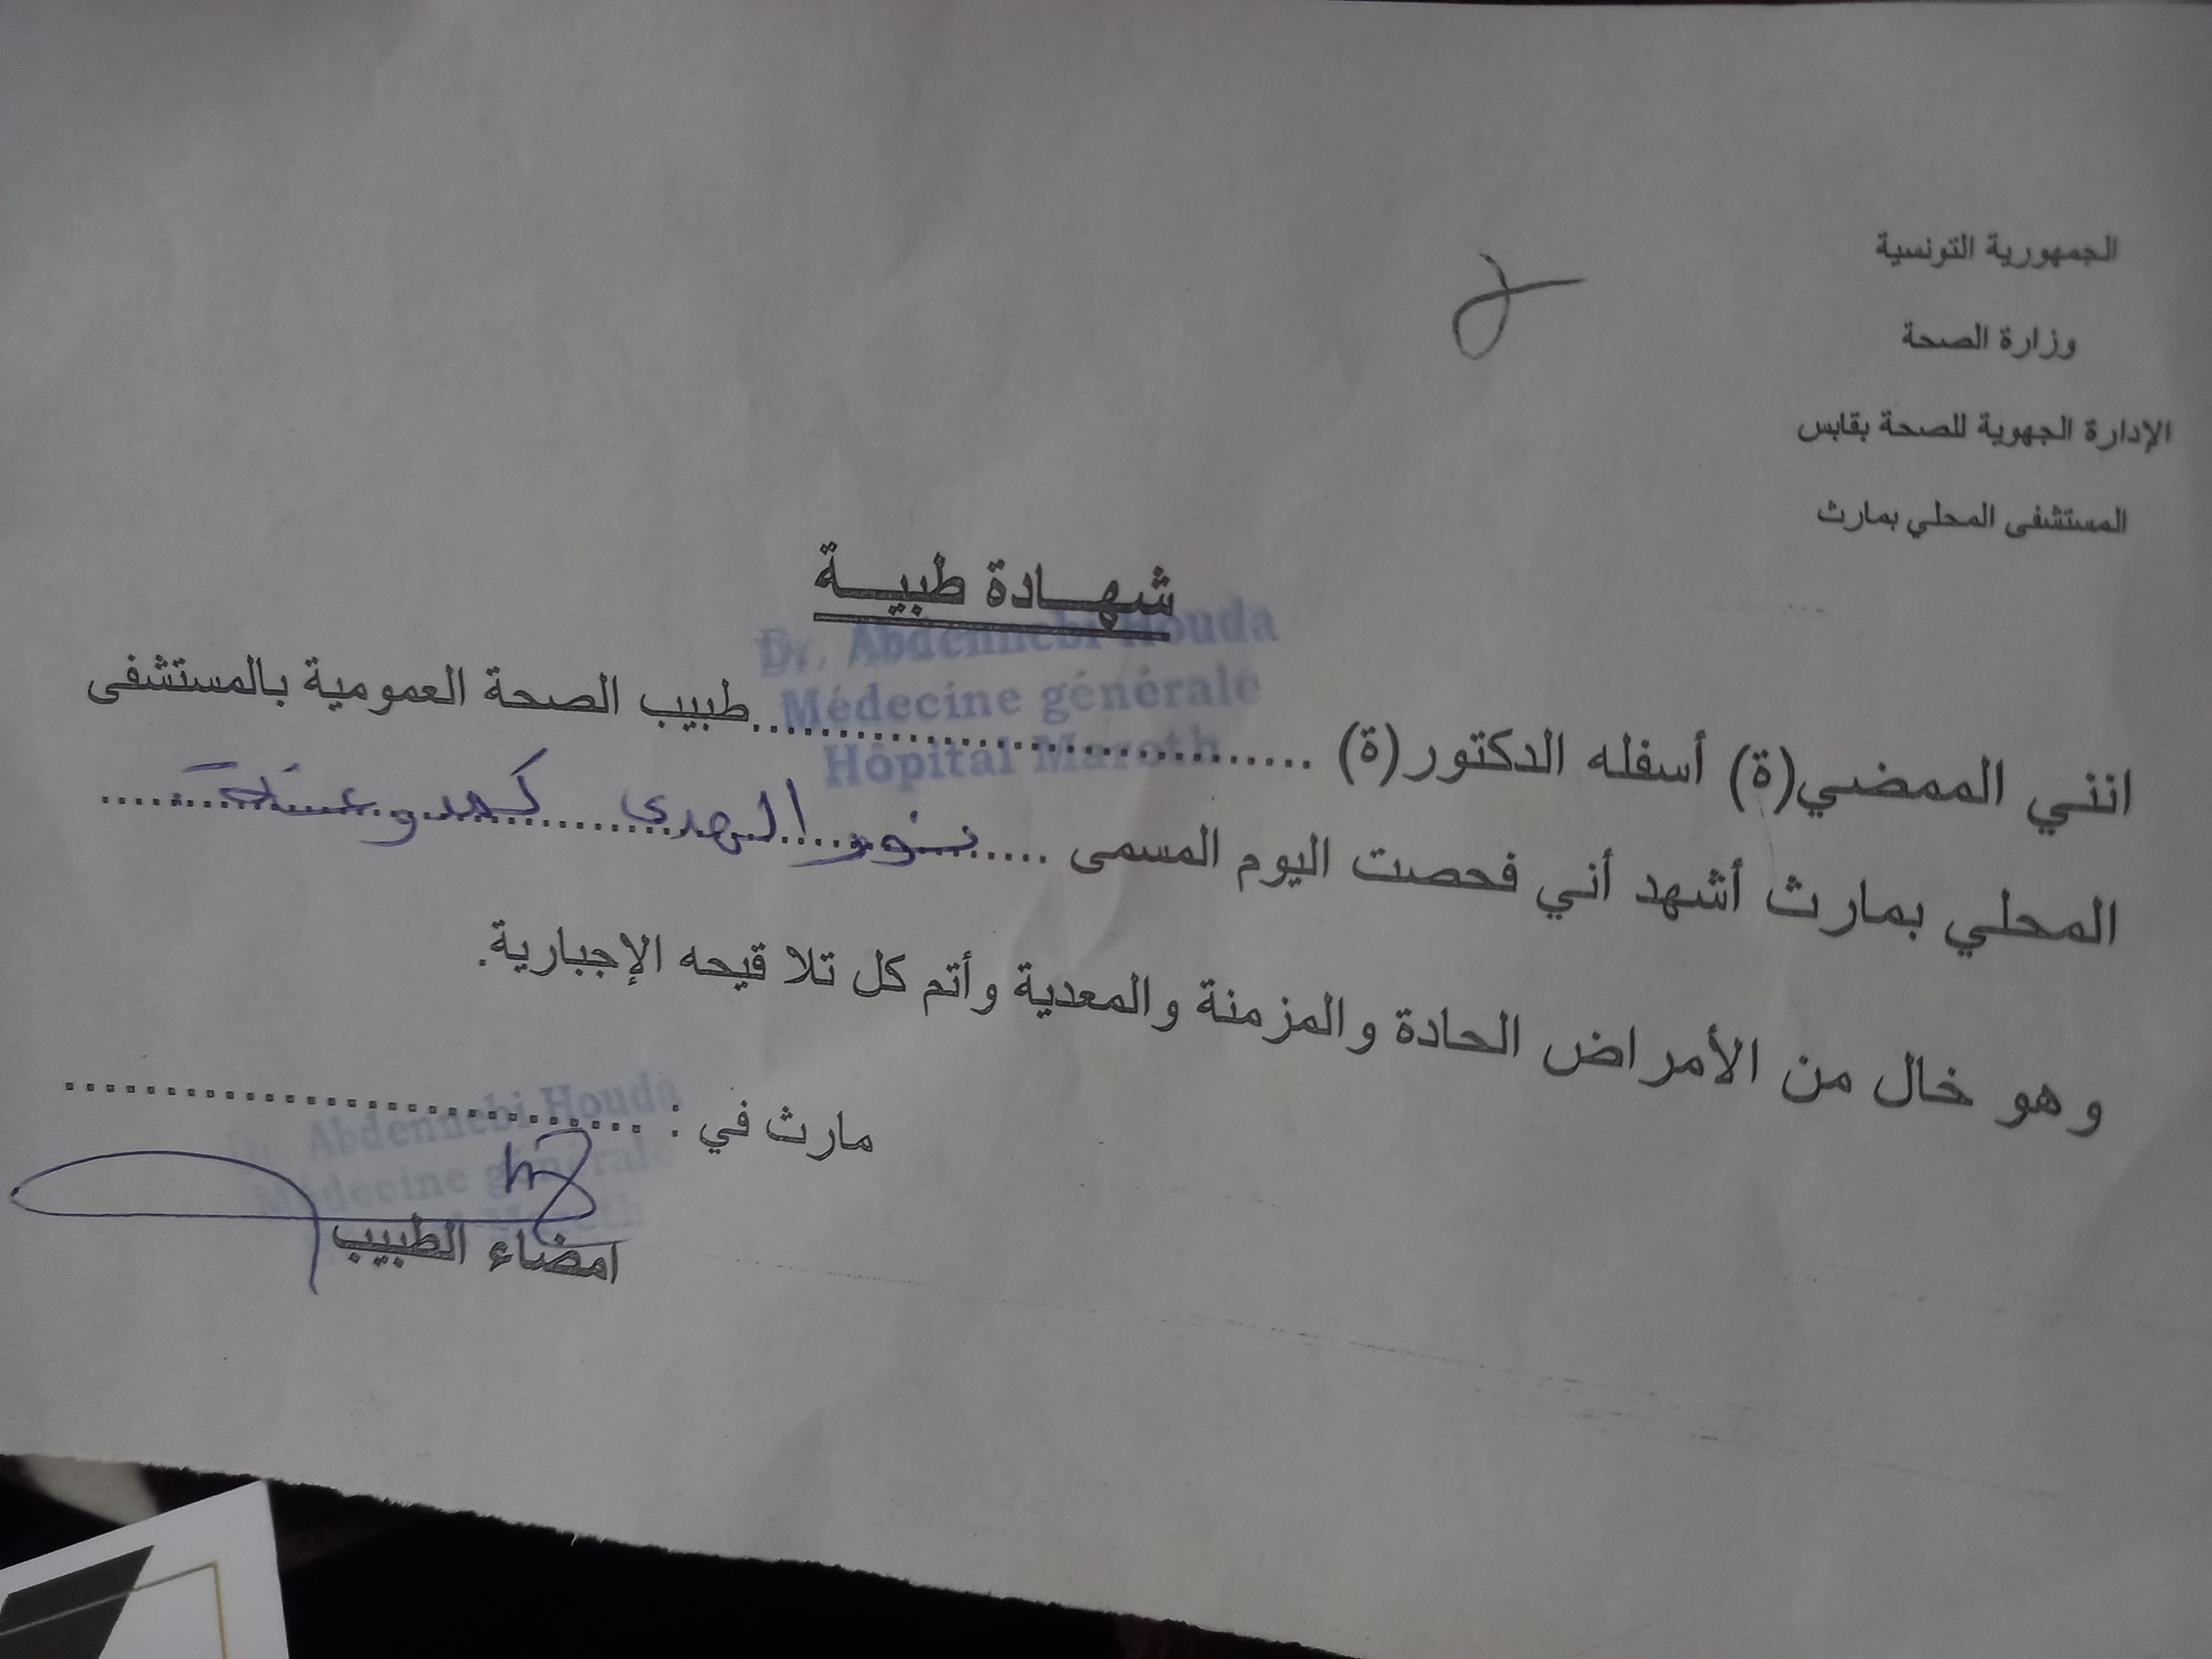 الجمهورية التونسية
وزارة الصحة
الإدارة الجهوية للصحة بقابس
المستشفى المحلي بمارث
شهـــادة طبيـــة
Dr. Abdennebi Houda
Médecine générale
Hôpital Mareth
انني الممضي(ة) أسفله الدكتور(ة) ..............................طبيب الصحة العمومية بالمستشفى
المحلي بمارث أشهد أني فحصت اليوم المسمى ....نور الهدى
وهو خال من الأمراض الحادة والمزمنة والمعدية وأتم كل تلا قيحه الإجبارية.
مارث في : ..............................
Dr. Abdennebi Houda
Médecine générale
Mareth
امضاء الطبيب